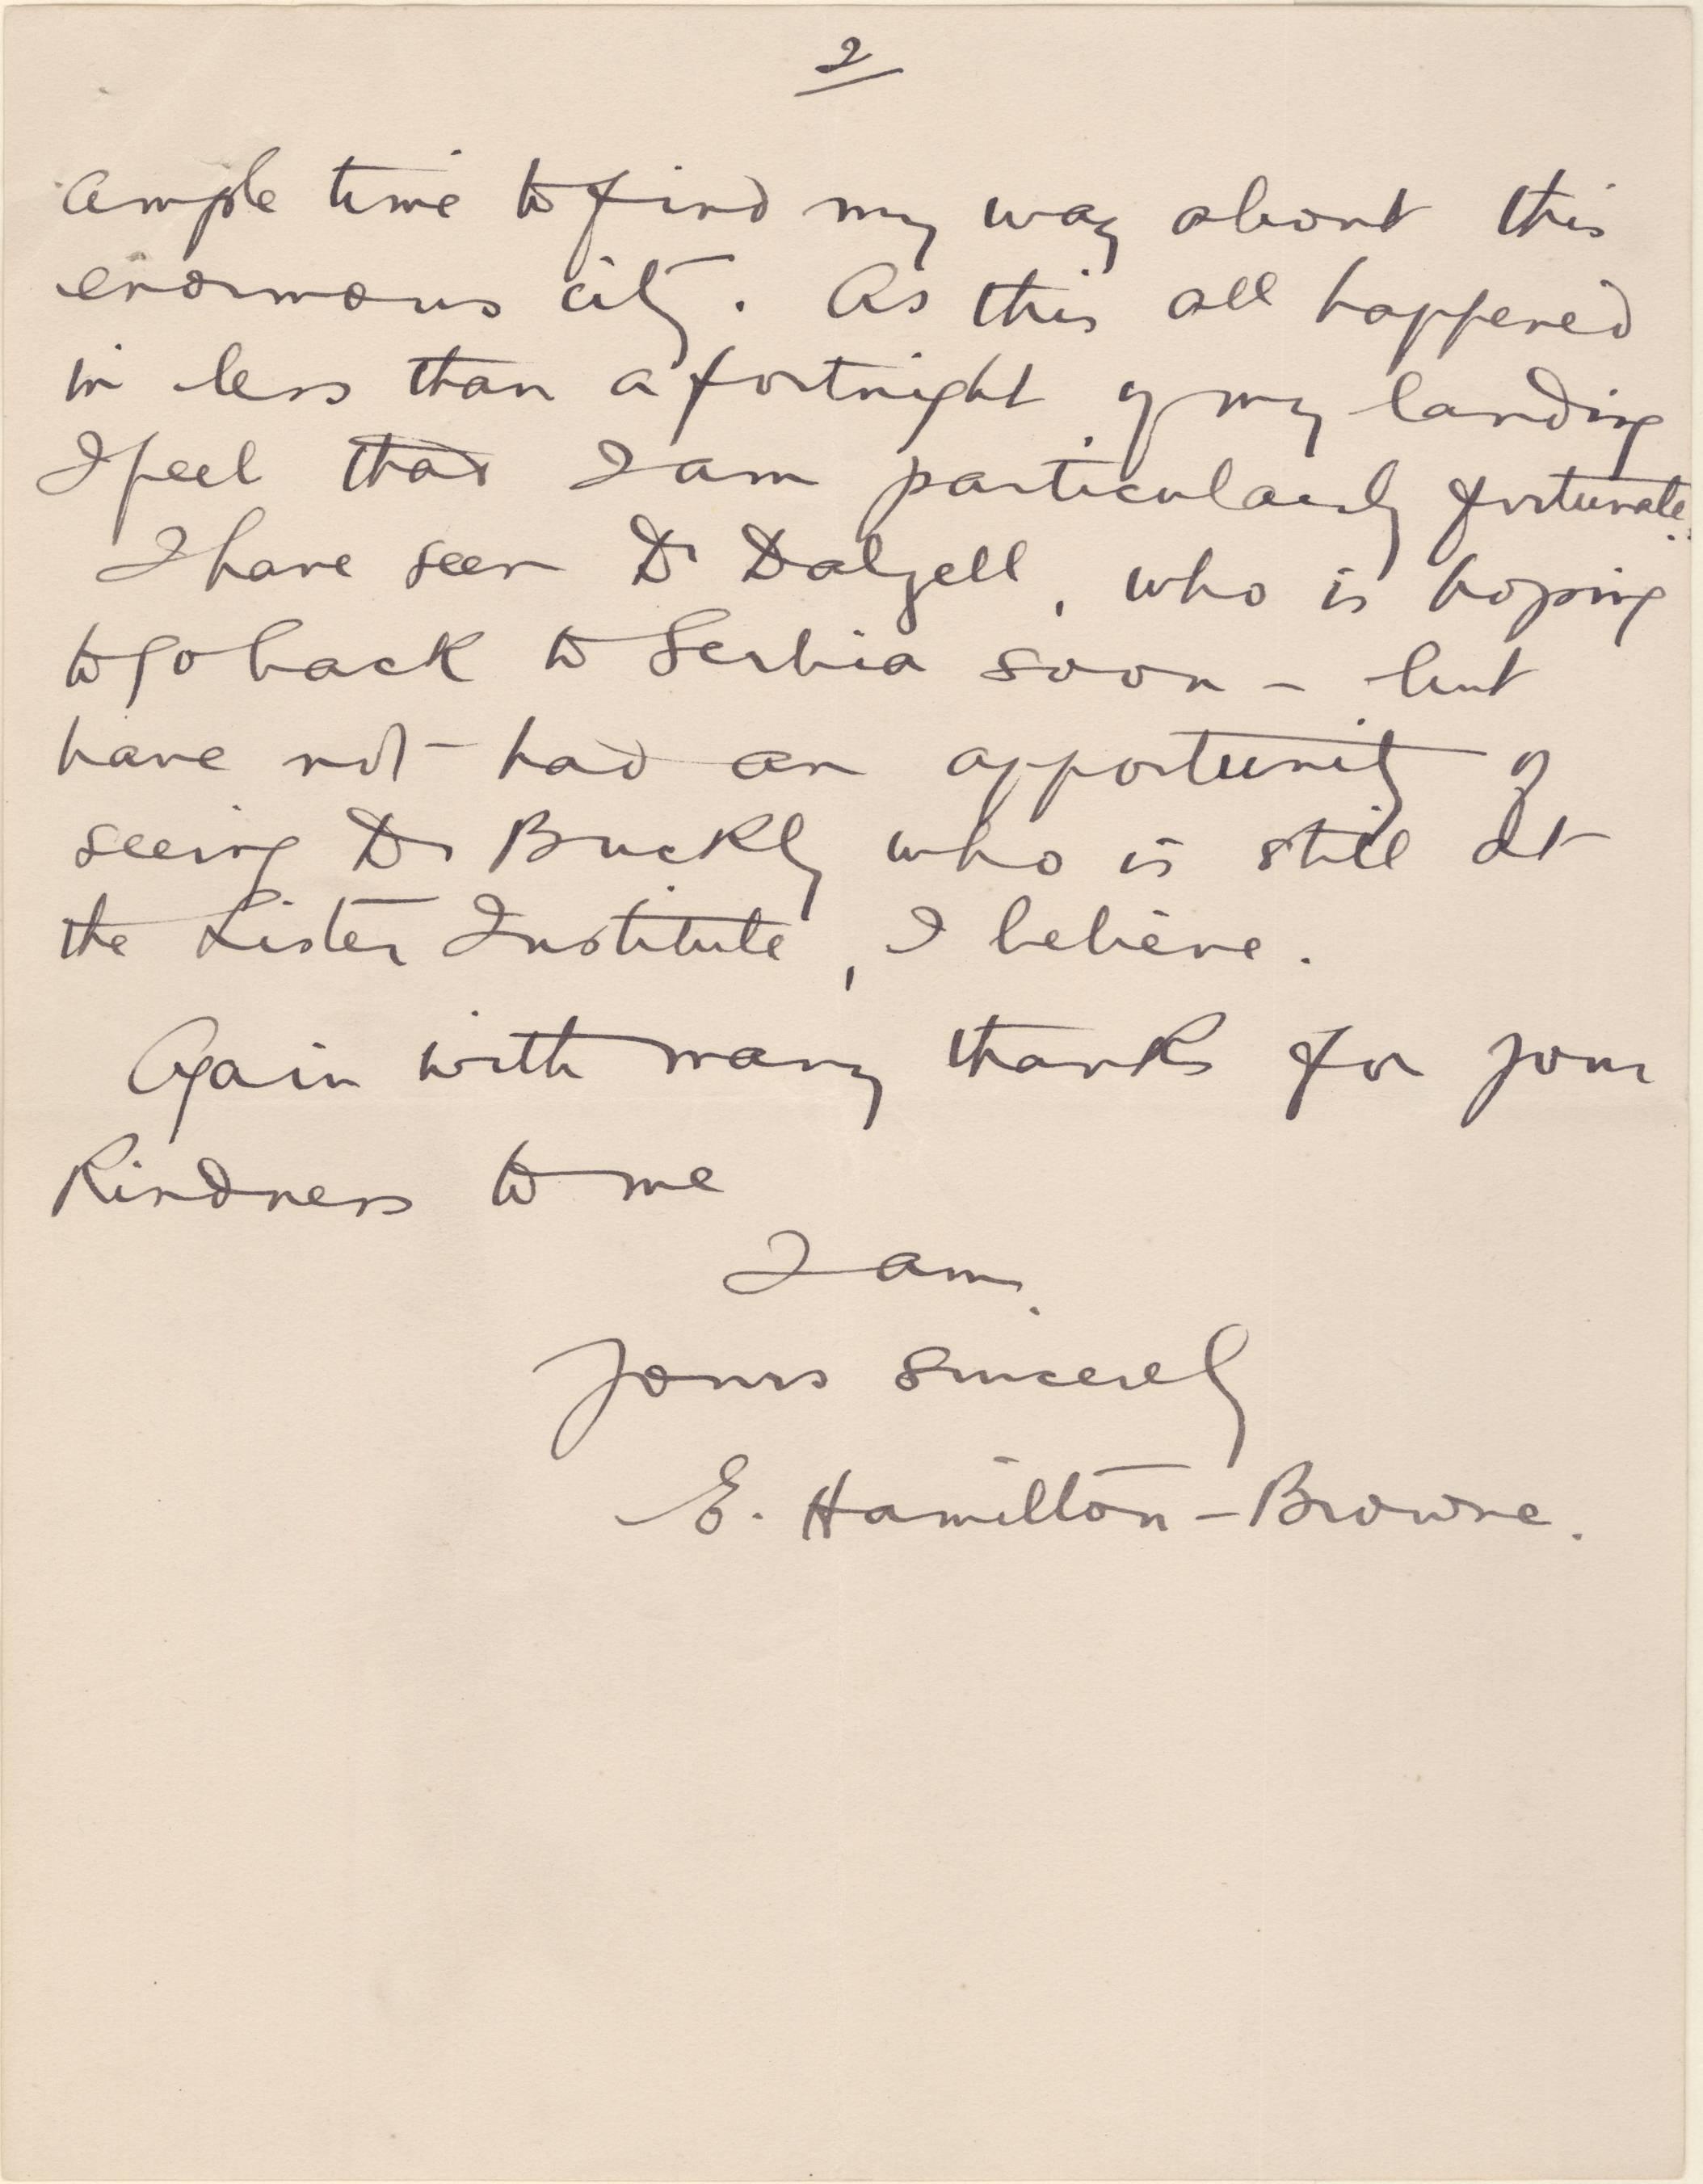 2
ample time to find my way about this
enormous city. As this all happened
in less than a fortnight of my landing
I feel that I am particularly fortunate.
I have seen Dr Dalyell, who is hoping
to go back to Serbia soon - but
have not had an opportunity of
seeing Dr Buckly who is still at
the Lister Institute, I believe.
Again with many thanks for your
kindness to me
I am.
Yours sincerely
E. Hamilton-Browne.